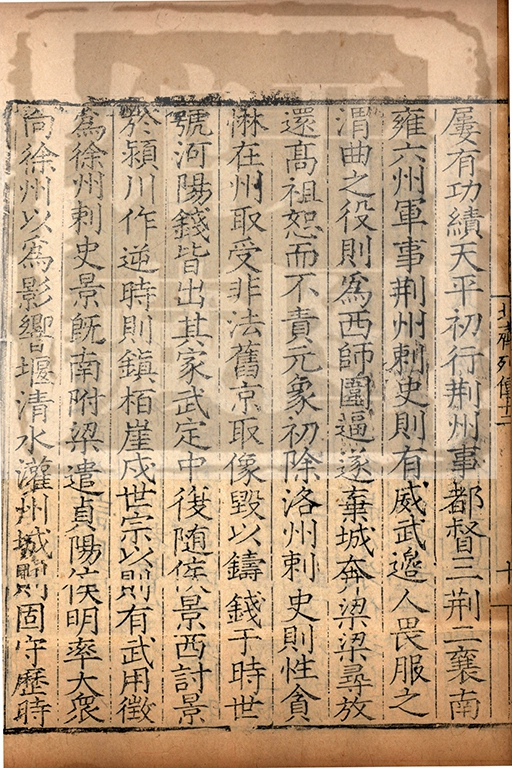 屢有功績天平初行荆州事都督三荆二襄南
雍六州軍事荆州刺史則有威武邉人畏服之
渭曲之役則爲西師圍逼遂棄城奔梁梁尋放
還高祖恕而不責元象初除洛州刺史則性貪
惏在州取受非法舊京取像毀以鑄錢于時世
號河陽錢皆出其家武定中後随侯景西討景
於潁川作逆時則鎮栢崖戍世宗以則有武用徴
爲徐州刺史景旣南附梁遣貞陽侯明率大衆
向徐州以爲影響堰清水灌州城則固守歷時
北齊列傳十二